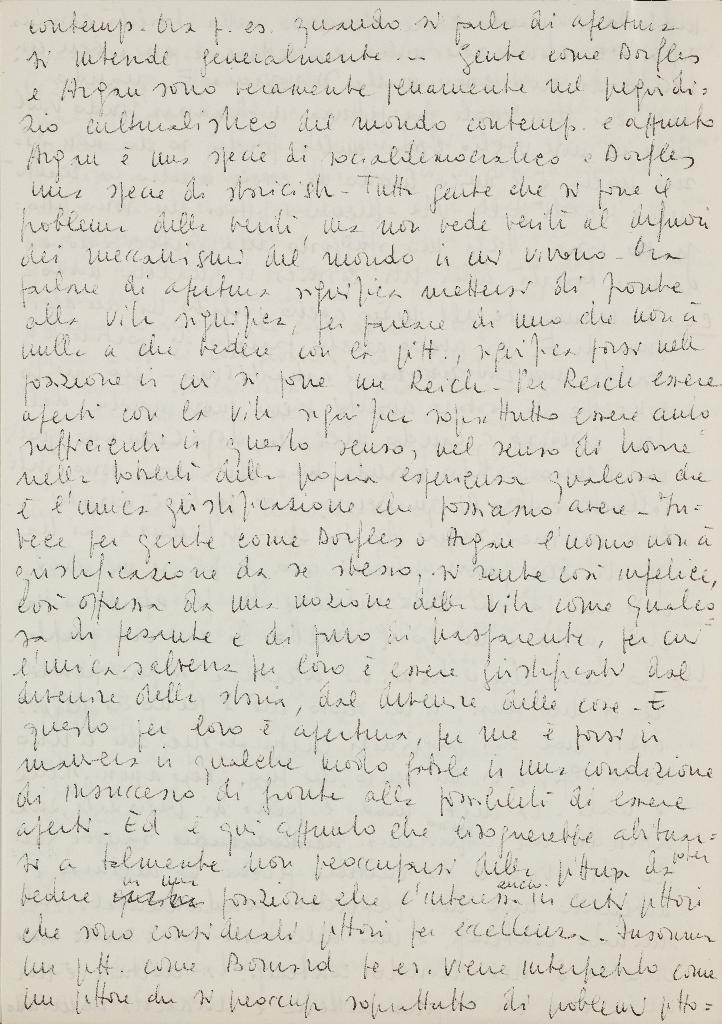 contemp. Ora p. es. quando si parla di apertura
si intende generalmente ... Gente come Dorfles
e Argan sono veramente pienamente nel pregiudi=
zio culturalistico del mondo contemp. e appunto
Argan è una specie di socialdemocratico e Dorfles
una specie di storicista - Tutta gente che si pone il
problema della verità, ma non vede verità al difuori
dei meccanismi del mondo in cui vivono - Ora
parlare di apertura significa mettersi di fronte
alla vita significa, per parlare di uno che non à
nulla a che vedere con la pitt., significa porsi nella
posizione in cui si pone un Reich - Per Reich essere
aperti con la vita significa soprattutto essere auto
sufficienti in questo senso, nel senso di trovare
nella povertà della propria esperienza qualcosa che
è l'unica giustificazione che possiamo avere - In=
vece per gente come Dorfles o Argan l'uomo non à
giustificazione da se stesso, si sente così infelice,
così oppresso da una nozione della vita come qualco=
sa di pesante e di non trasparente, per cui
l'unica salvezza per loro è essere giustificati dal
divenire della storia, dal divenire delle cose - E
questo per loro è apertura, per me è porsi in
maniera in qualche modo in una condizione
di insuccesso di fronte alla possibilità di essere
aperti - Ed è qui appunto che bisognerebbe abituar=
si a talmente non preoccuparsi della pittura da poter
vedere in una posizione che c'interessa anche in certi pittori
che sono considerati pittori per eccellenza - Insomma
un pitt. come Bonnard p. es. viene interpretato come
un pittore che si preoccupa soprattutto di problemi pitto=